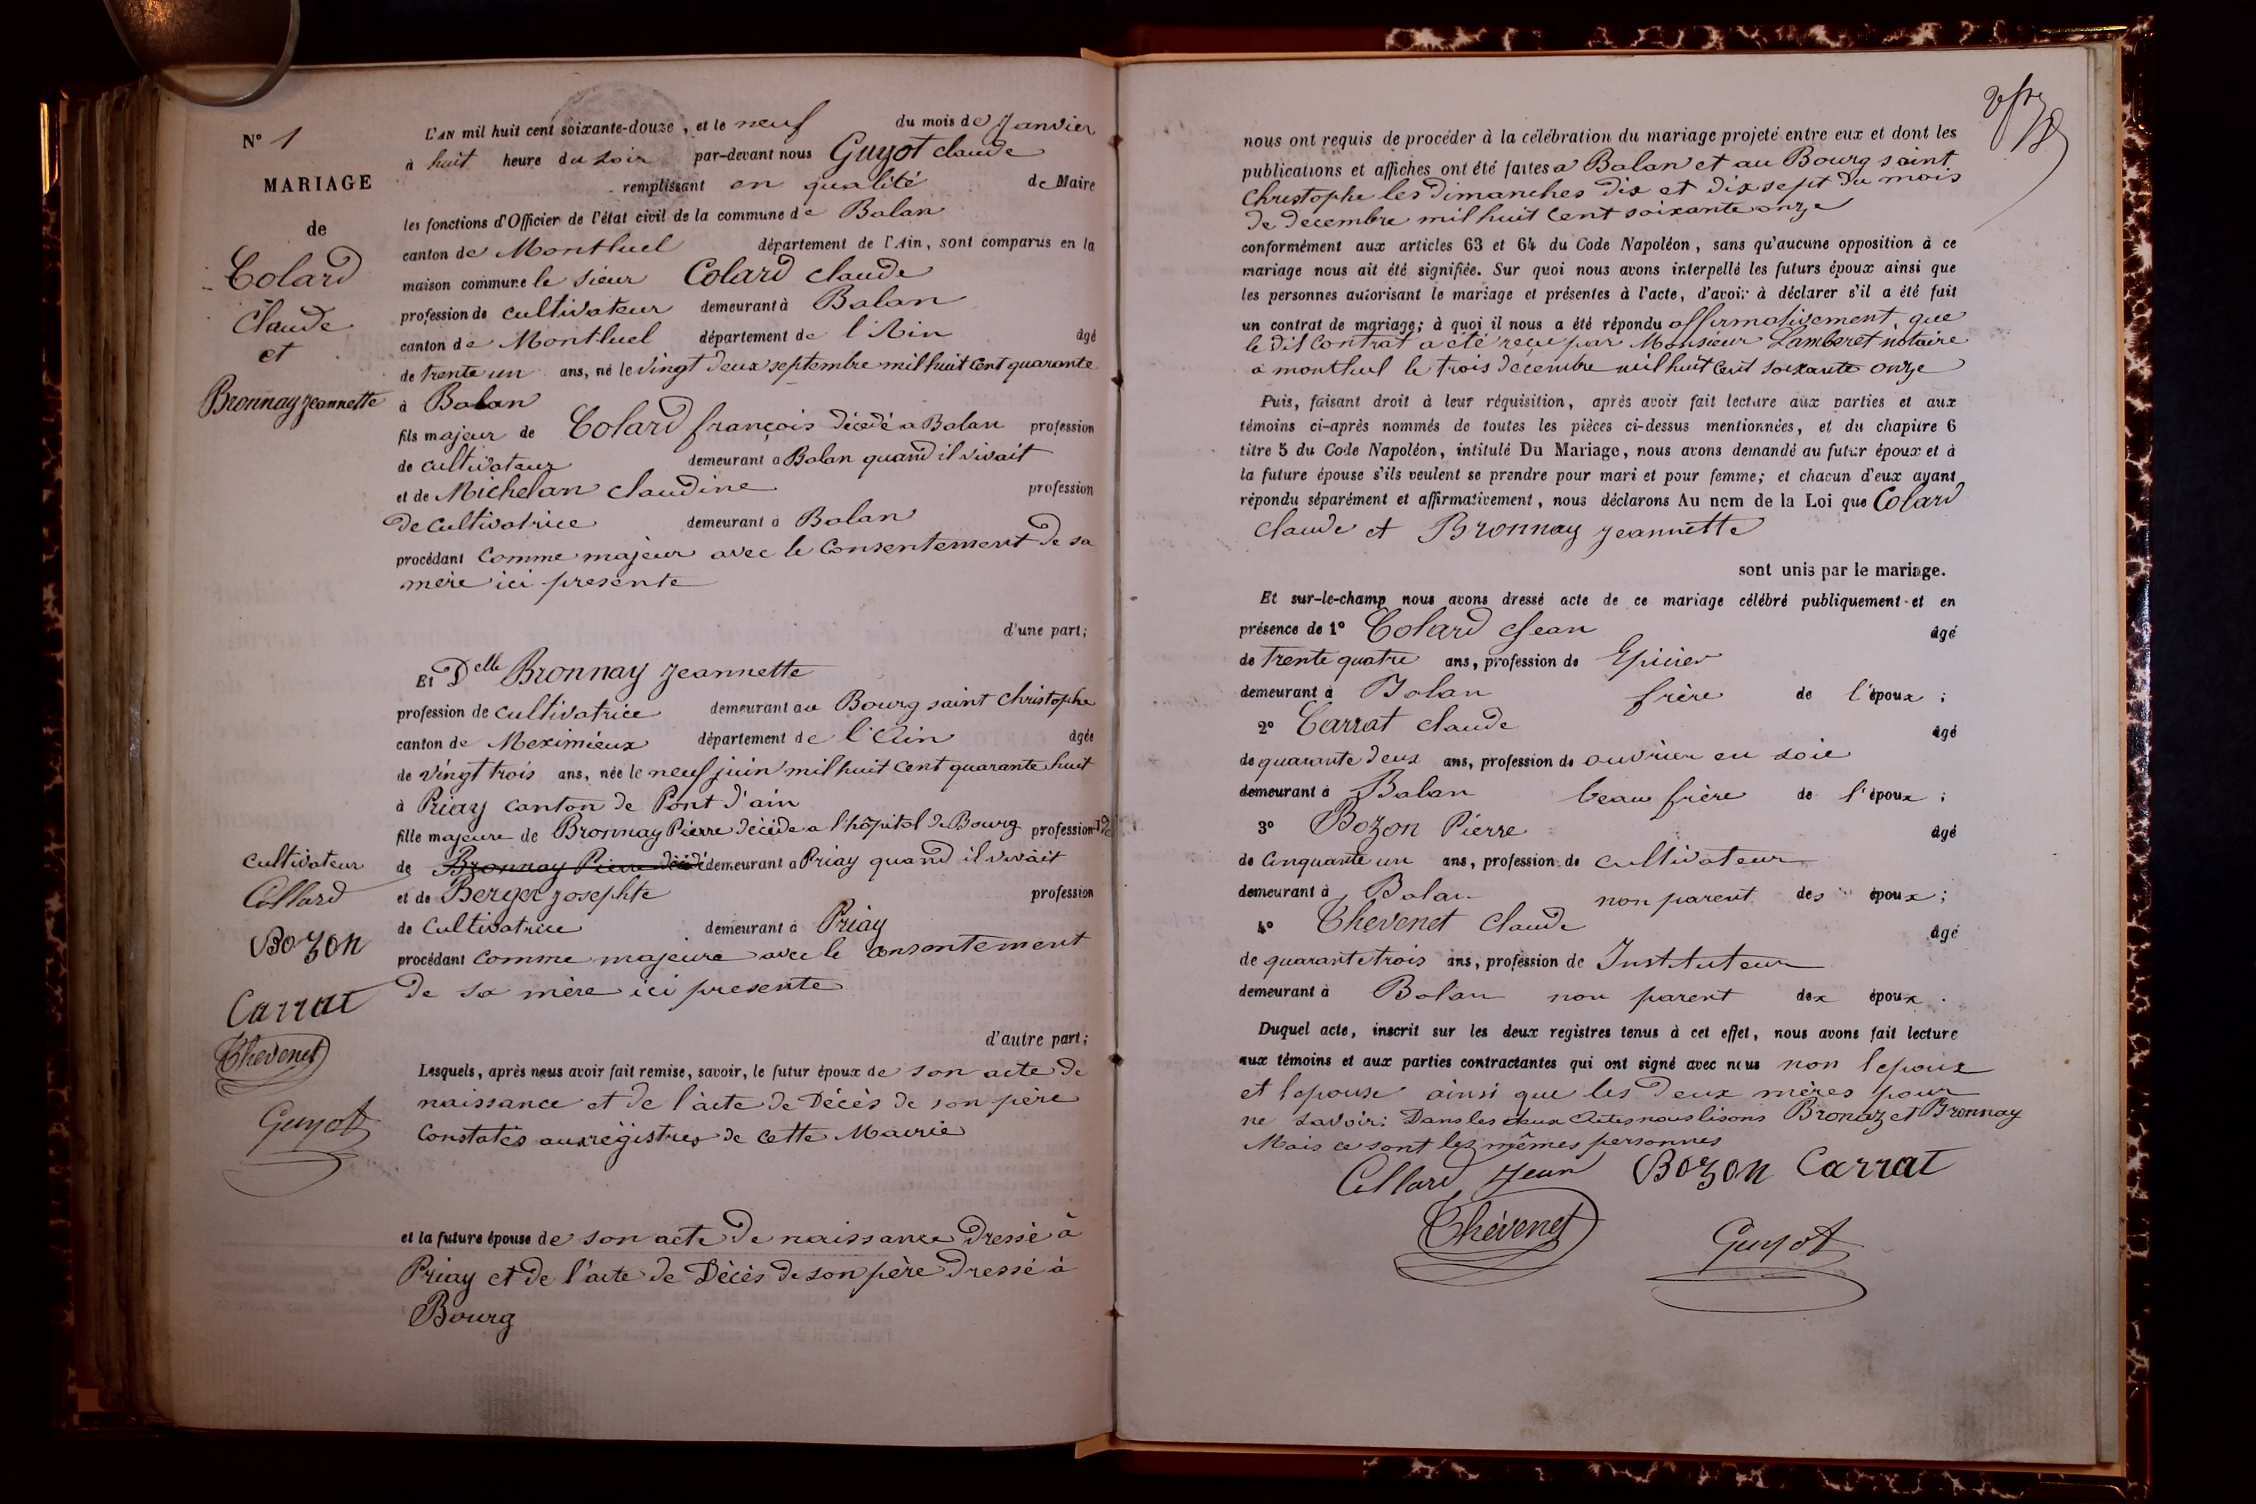 N° 1
MARIAGE
de
Colard
Claude
et
Bronnay Jeannette
L'AN mil huit cent soixante-douze, et le neuf du mois de Janvier
à huit heure du soir par-devant nous Guyot claude
remplissant en qualité de Maire
les fonctions d'Officier de l'état civil de la commune de Balan
canton de Montluel département de l'Ain, sont comparus en la
maison commune le sieur Colard claude
profession de cultivateur demeurant à Balan
canton de Montluel département de l'Ain âgé
de trente un ans, né le vingt deux septembre mil huit cent quarante
à Balan
fils majeur de Colard françois décédé a Balan profession
de cultivateur demeurant a Balan quand il vivait
et de Michelan claudine profession
de cultivatrice demeurant à Balan
procédant comme majeur avec le consentement de sa
mère ici presente
d'une part;
Et Delle Bronnay Jeannette
profession de cultivatrice demeurant au Bourg saint Christophe
canton de Meximieux département de l'Ain âgée
de vingt trois ans, née le neuf juin mil huit cent quarante huit
à Priay canton de Pont d'ain
fille majeure de Bronnay Pierre décédé a l'hôpital de Bourg profession de
de Bronnay Pierre décédé demeurant a Priay quand il vivait
et de Berger Josephte profession
de cultivatrice demeurant à Priay
procédant comme majeure avec le consontement
de sa mère ici presente
d'autre part;
cultivateur
Collard
Bozon
Carrat
Thevenet
Guyot
Lesquels, après nous avoir fait remise, savoir, le futur époux de son acte de
naissance et de l'acte de Décès de son père
Constatés aux régistres de cette Mairie
et la future épouse de son acte de naissance Dressé à
Priay et de l'acte de Décès de son père Dressé à
Bourg
nous ont requis de procéder à la célébration du mariage projeté entre eux et dont les
publications et affiches ont été faites a Balan et au Bourg saint
Christophe les dimanches dix et dix sept du mois
de decembre mil huit cent soixante onze
conformément aux articles 63 et 64 du Code Napoléon, sans qu'aucune opposition à ce
mariage nous ait été signifiée. Sur quoi nous avons interpellé les futurs époux ainsi que
les personnes autorisant le mariage et présentes à l'acte, d'avoir à déclarer s'il a été fait
un contrat de mariage; à quoi il nous a été répondu affirmativement, que
le dit Contrat a été reçu par Monsieur Lamberet notaire
a montluel le trois décembre mil huit cent soixante onze
Puis, faisant droit à leur réquisition, après avoir fait lecture aux parties et aux
témoins ci-après nommés de toutes les pièces ci-dessus mentionnées, et du chapitre 6
titre 5 du Code Napoléon, intitulé Du Mariage, nous avons demandé au futur époux et à
la future épouse s'ils veulent se prendre pour mari et pour femme; et chacun d'eux ayant
répondu séparément et affirmativement, nous déclarons Au nom de la Loi que Colard
claude et Bronnay Jeannette
sont unis par le mariage.
Et sur-le-champ nous avons dressé acte de ce mariage célébré publiquement et en
présence de 1° Colard Jean âgé
de trente quatre ans, profession de Epicier
demeurant à Balan frère de l'époux;
2° Carrat claude âgé
de quarante deux ans, profession de ouvrier en soie
demeurant à Balan beau frère de l'époux;
3° Bozon Pierre âgé
de cinquante un ans, profession de cultivateur
demeurant à Balan non parent des époux;
4° Thevenet Claude âgé
de quarante trois ans, profession de Instituteur
demeurant à Balan non parent des époux.
Duquel acte, inscrit sur les deux registres tenus à cet effet, nous avons fait lecture
aux témoins et aux parties contractantes qui ont signé avec nous non lepoux
et lepouse ainsi que les deux mères pour
ne savoir: Dans les deux Actes nous lisons Bronaz et Bronnay
Mais ce sont les mêmes personnes
Collard Jean Bozon Carrat
Thévenet Guyot